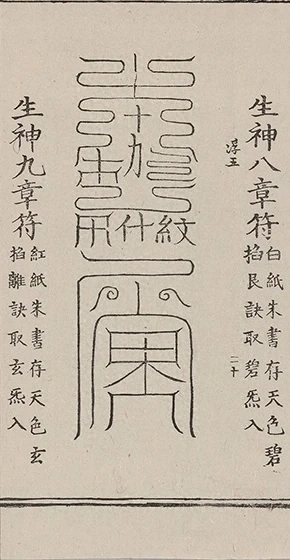 生神八章符
白紙朱書存天色碧
掐艮訣取碧炁入
淳五
二十
生神九章符
紅紙朱書存天色玄
掐離訣取玄炁入